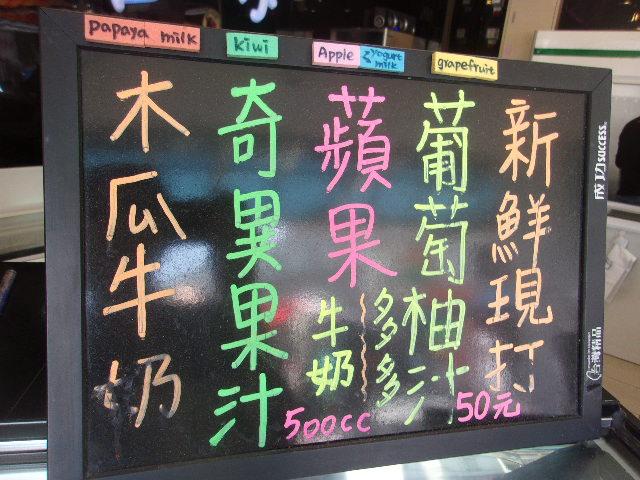 papaya milk
kiwi
Apple
yogurt
milk
grapefruit
新鮮現打
葡萄柚汁
50元
蘋果
多多
牛奶
500cc
奇異果汁
木瓜牛奶
成功 SUCCESS
台灣精品